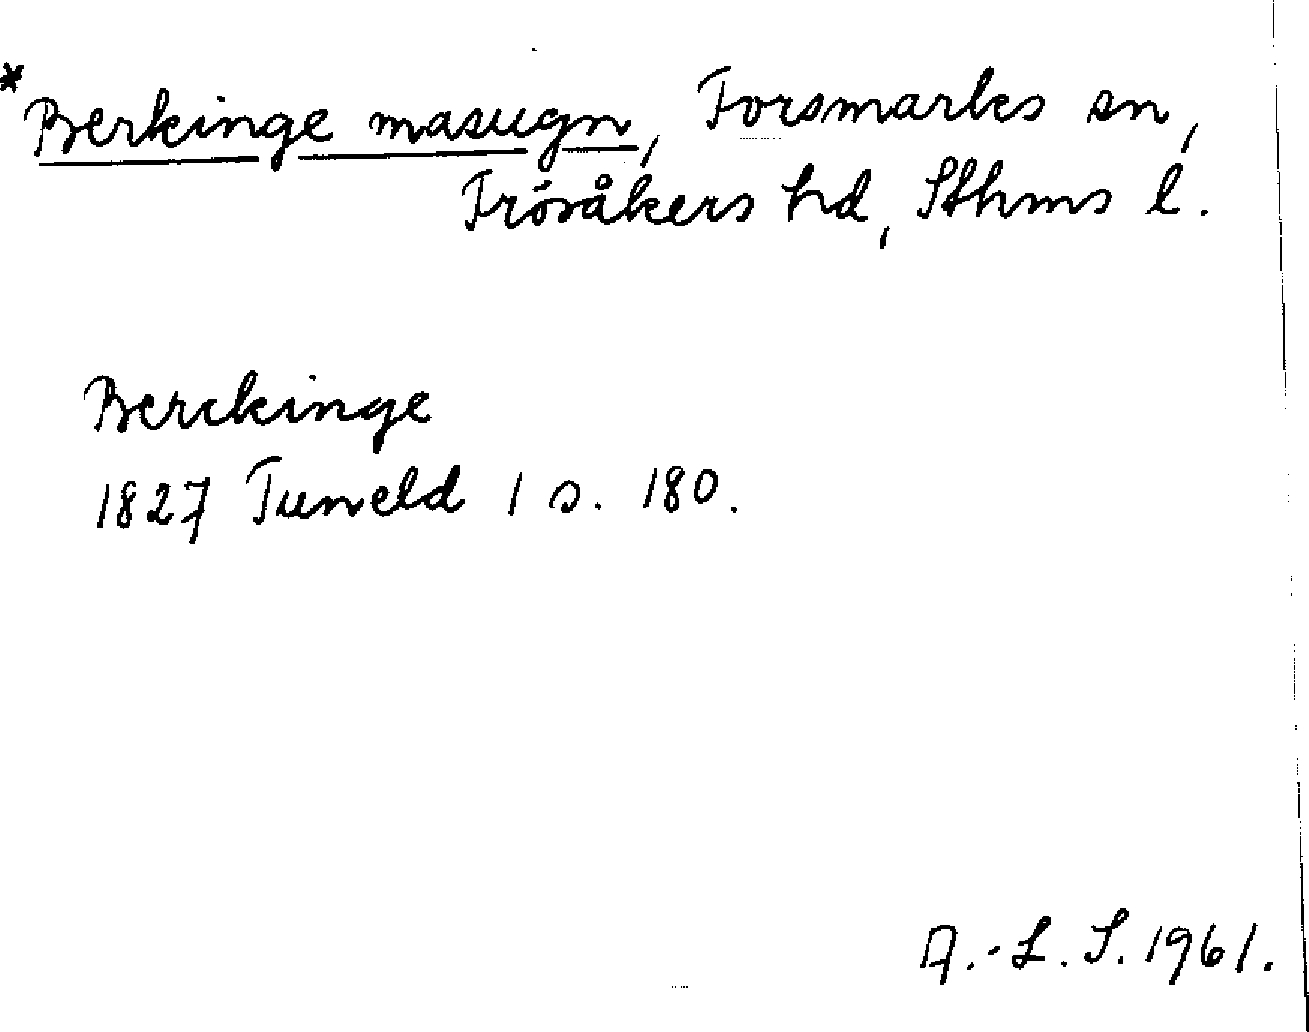 *Berkinge masugn, Forsmarks sn,
Frösåkers hd, Sthms l.
Berckinge
1827 Tuneld 1 s. 180.
A.-L. S. 1961.